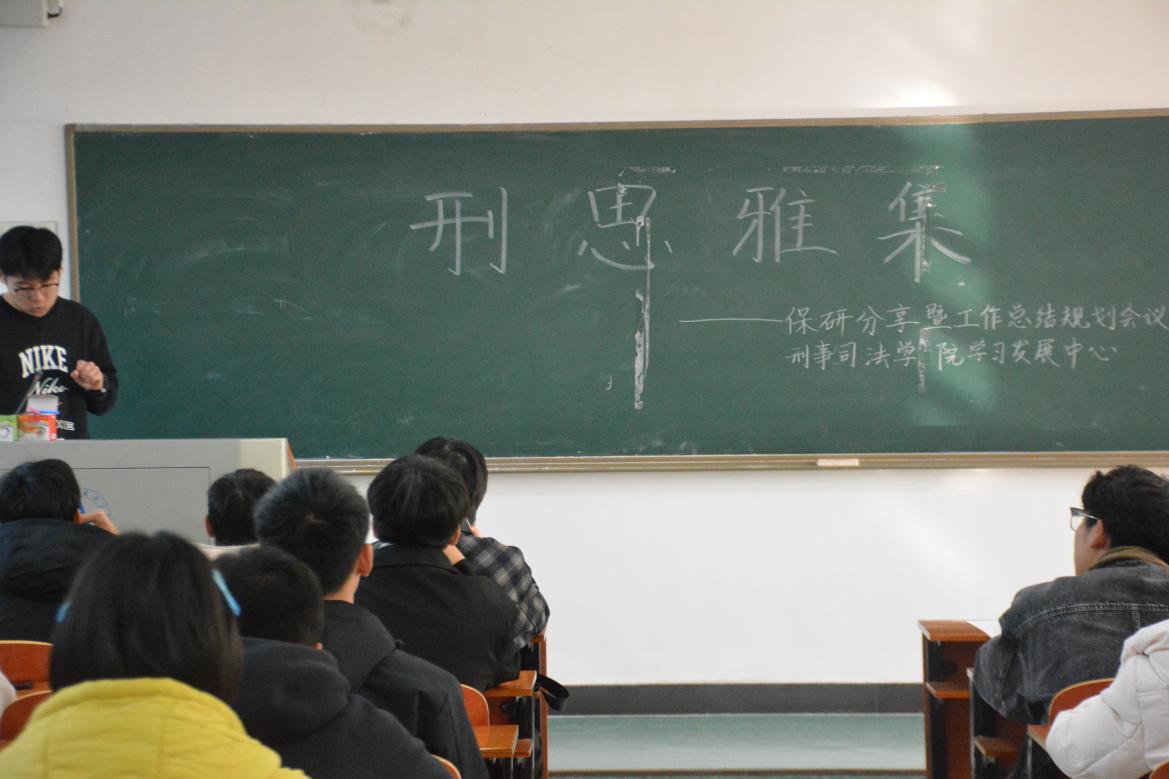 刑思雅集
——保研分享暨工作总结规划会议
刑事司法学院学习发展中心
NIKE
Nike